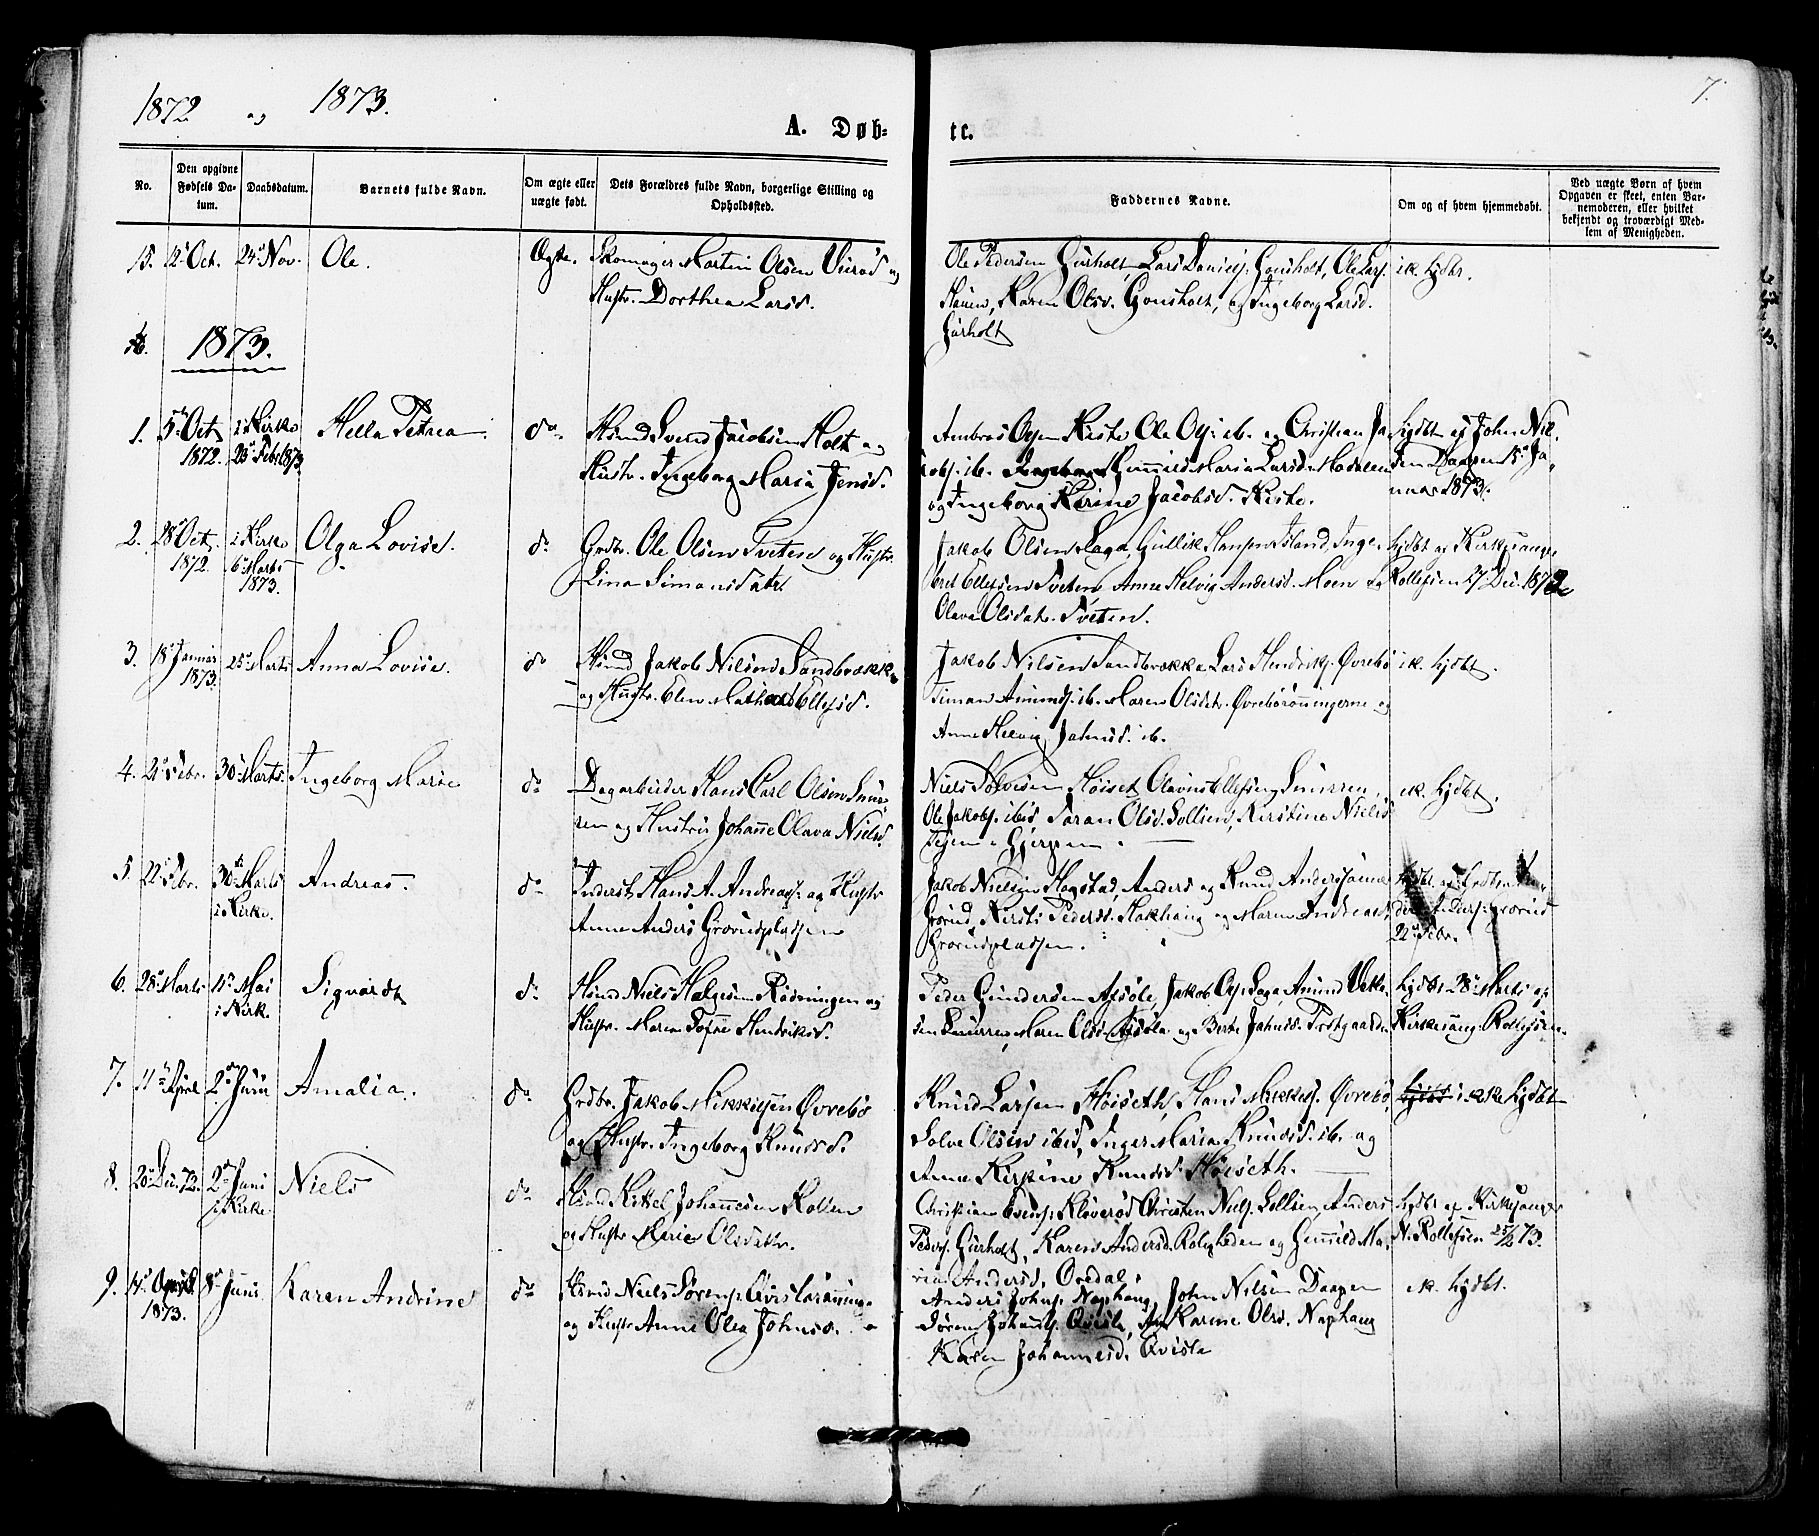 1872 og 1873.
7.
A. Døb-
te.
No.
Den opgivne Fødsels Da-
tum.
Daabsdatum.
Barnets fulde Navn.
Om ægte eller
uægte født.
Dets Forældres fulde Navn, borgerlige Stilling og
Opholdssted.
Faddernes Navne.
Om og af hvem hjemmedøbt.
Ved uægte Børn af hvem
Opgaven er skeet, enten Bar-
nemoderen, eller hvilket
bekjendt og troværdigt Med-
lem af Menigheden.
15. 12 Oct. 24 Nov. Ole. Ægte. Skomager Martin Olsen og
Hustr. Dorthea Larsd.
Ole Pedersen Gurholt, Lars Daniels. Gonsholt, Ole Lars.
Hauen, Karen Olsd. Gonsholt, og Ingeborg Larsd.
Gurholt
ik. hjdbt.
1873.
1. 5 Oct. 1872. i Kirke 23 Feb 1873 Hella Petrea. do Husmd Svend Jacobsen Holt og
Hustr. Ingeborg Maria Jensd.
Ambros Kiste Ole Ols. ib. og Christian Ja-
cobs. ib. Gunnild Maria Larsd.
og Ingeborg Karine Jacobsd. Kiste.
hjdbt af John Nil-
sen Daapen 15 Ja-
nuar 1873.
2. 28 Oct. 1872. i Kirke 6 Marts 1873. Olga Lovise. do Grdbr. Ole Olsen Tveten og Hustr.
Lina Simonsdatr.
Jakob Olsen Laga, Gullik Hansen Island, Inge-
bret Ellefsen Tveten, Anne Helvig Andersd. Moen og
Olava Olsdatr. Tveten.
hjdbt af Kirkesanger
Rollefsen 27 Dec. 1872
3. 18 Januar 1873. 25 Marts Anna Lovise. do Husmd Jakob Nilsen Sandbrække
og Hustr. Elen Mathea Ellefsd.
Jakob Nilsen Sandbrække Lars Hendriks. Øvrebø
Simon Amunds. ib. Maren Olsdatr. Øvrebørønningerne og
Anne Helvig Jahnsd. ib.
ik. hjdbt.
4. 21 Febr. 30 Marts. Ingeborg Marie do Dagarbeider Hans Carl Olsen Snur-
ren og Hustru Johanne Olava Nielsd.
Niels Solvesen Høiset Olavus Ellefsen Snurren,
Ole Jakobs. ibid Saran Olsd. Sollien, Kirstine Nielsd
i Gjerpen.
ik. hjdbt.
5. 22 Febr. 30 Marts i Kirke. Andreas. do Inderst Hans A. Andreass. og Hustr
Anne Anders Grorudpladsen
Jakob Nielsen Hogstad, Anders og Knud
Grorud, Kirsti Pedersd. Hakhaug og Maren Andreasd.
Grorudpladsen.
22 Febr.
6. 28 Marts 11 Mai i Kirk. Sigvardt do Husmd Niels Helgesen Rødningen og
Hustr. Maren Sofie Hendriksd.
Peder Gundersen Ajsøle, Jakob Ols. Laga, Amund
Snurren, Maren Olsd. Ajsøle og Berte Jahnsd.
hjdbt 28 Marts af
Kirkesang. Rollefsen.
7. 11 April 2 Juni Amalia. do Grdbr. Jakob Mikkelsen Øvrebø
og Hustr. Ingeborg Knudsd.
Knud Larsen Høiseth, Hans Mikkels. Øvrebø,
Solve Olsen ibid, Inger Maria Knudsd. ib. og
Anne Kirstine Knudsd. Høiseth.
ikke hjdbt
8. 20 Dec. 72. 2 Juni i Kirke. Niels do Husmd Kittel Johannesen Kolien
og Hustr Marie Olsdatr.
Christian Svends. Kløverød Christen Niels. Sollien, Anders
Peders. Gurholt, Karen Andersd. Roligheden og Gunnild Ma-
ria Andersd. Øvedal.
hjdbt af Kirkesanger
N. Rollefsen 25/2 73.
9. 14 April. 1873. 8 Juni. Karen Andrine do Husmd Niels Sørens.
og Hustr Anne Olea Johnsd.
Anders Johns. Naphaug John Nilsen Daapen
Søren Johanns. Qvisle, Karine Olsd. Naphaug
Karen Johannesd. Qvisle
ik. hjdbt.